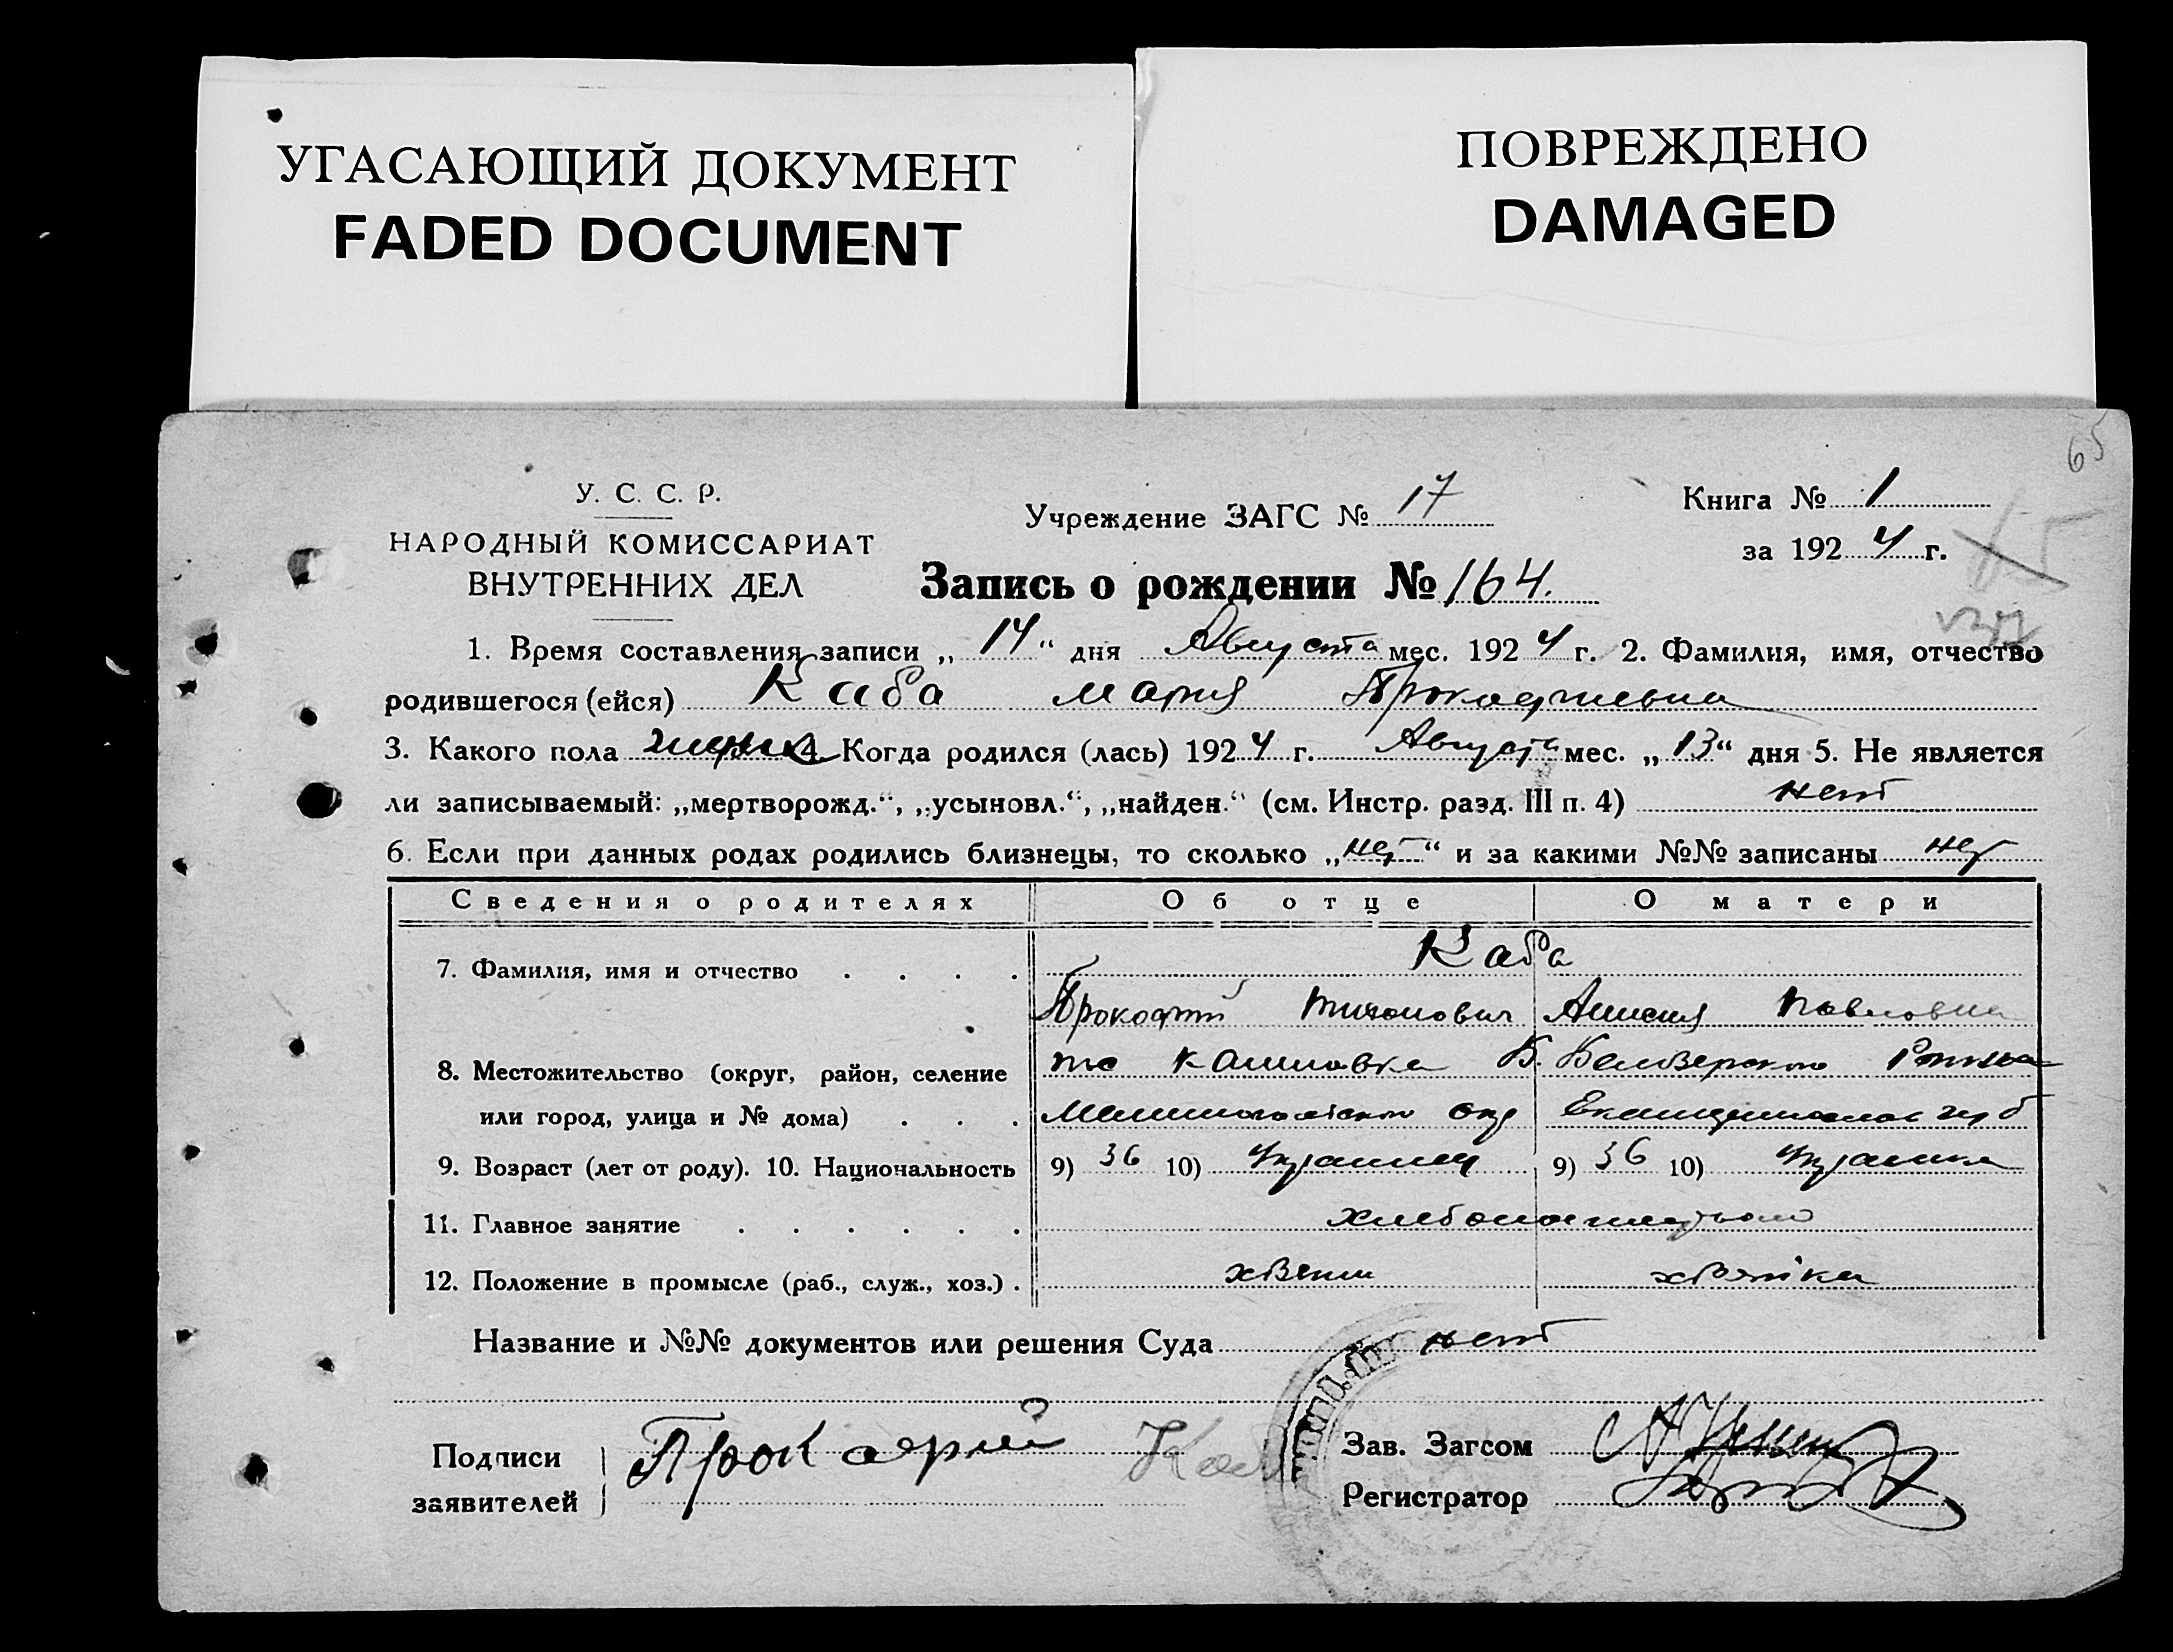 УГАСАЮЩИЙ ДОКУМЕНТ
FADED DOCUMENT
ПОВРЕЖДЕНО
DAMAGED
65
У. С. С. Р.
НАРОДНЫЙ КОМИССАРИАТ
ВНУТРЕННИХ ДЕЛ
Учреждение ЗАГС № 17
Книга № 1
за 1924 г.
Запись о рождении № 164.
1. Время составления записи „14“ дня Августа мес. 1924 г. 2. Фамилия, имя, отчество
родившегося (ейся) Каба Мария Прокофиевна
3. Какого пола 4. Когда родился (лась) 1924 г. Августа мес. „13“ дня 5. Не является
ли записываемый: „мертворожд.“, „усыновл.“, „найден.“ (см. Инстр. разд. III п. 4) нет
6. Если при данных родах родились близнецы, то сколько „нет“ и за какими №№ записаны нет
Сведения о родителях Об отце О матери
7. Фамилия, имя и отчество . . . . Каба
Прокофий Тихонович Анисия Павловна
8. Местожительство (округ, район, селение Б. Белозерского
или город, улица и № дома) . . .
9. Возраст (лет от роду). 10. Национальность 9) 36 10) 9) 36 10)
11. Главное занятие . . . . . .
12. Положение в промысле (раб., служ., хоз.) .
Название и №№ документов или решения Суда нет
Подписи
заявителей
Прокофий Каба
Зав. Загсом
Регистратор